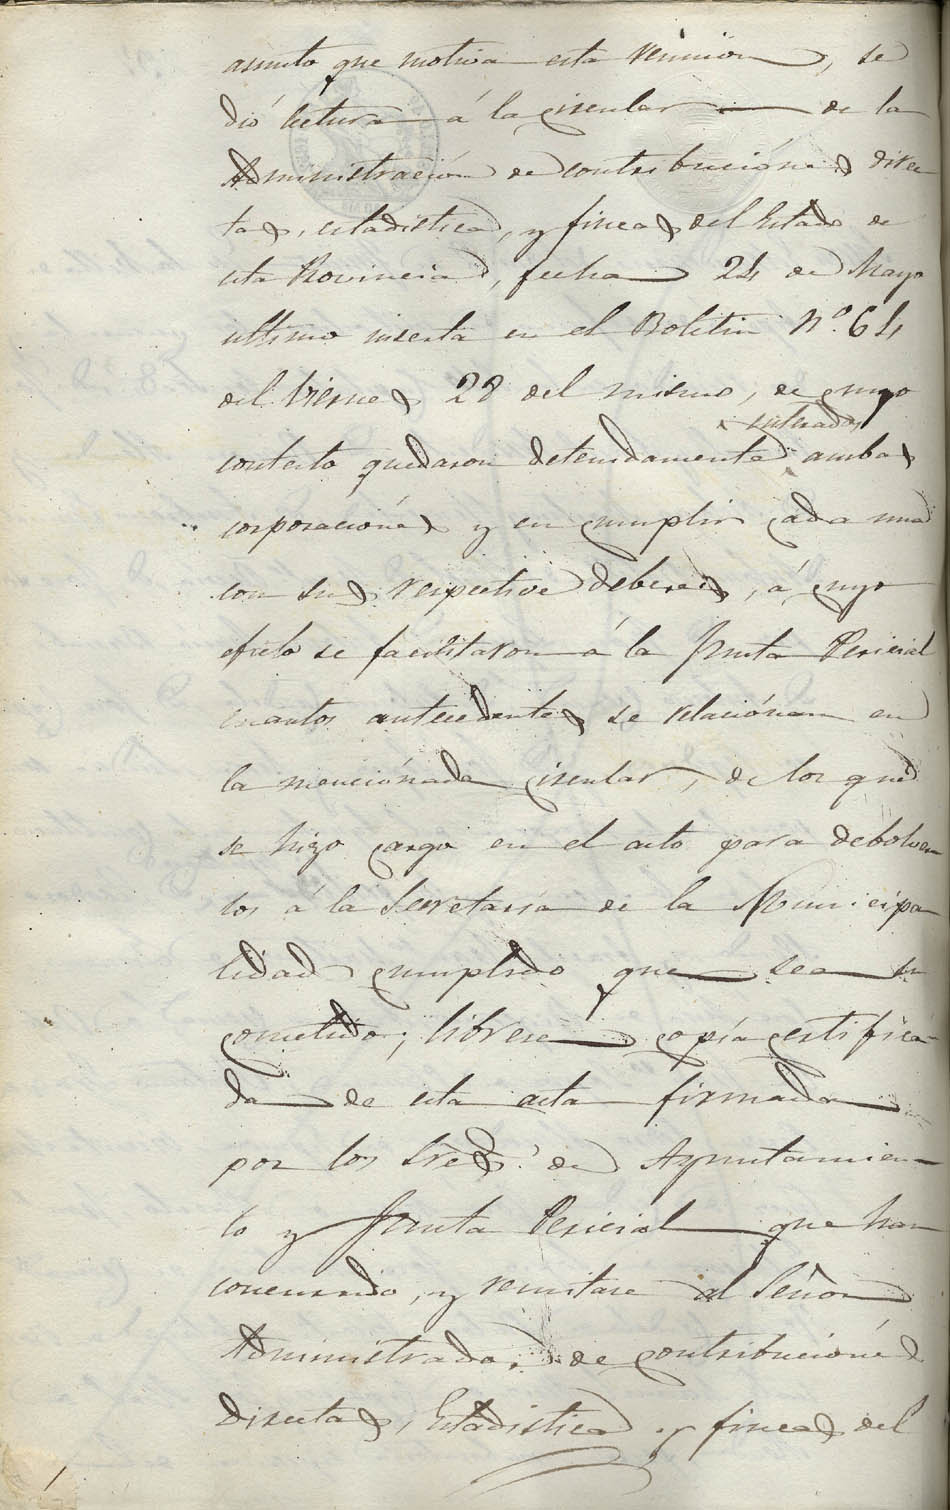 asunto que motiva esta reunion, se
dió lectura á la circular de la
Administración de contribuciónes direc
tas, estadistica, y fincas del Estado de
esta Provincia, fecha 24 de Mayo
ultimo inserta en el Boletin Nº. 64
del Viernes 28 del mismo, de cuyo
enterados
contesto quedaron detenidamente ambas
corporaciónes y en cumplir cada una
con sus respective deberes, á cuyo
efecto se facilitaron á la Junta Pericial
cuantos antecedentes se relaciónan en
la menciónada circular, de los que
se hizo cargo en el acto para debolver
los á la Secretaría de la Municipa
lidad cumplido que sea su
cometido; librese copia certifica
da de esta acta firmada
por los Sres. de Ayuntamien
to y Junta Pericial que han
concurrido, y remitase al Señor
Administrador de contribuciónes
Directas, Estadistica y fincas del